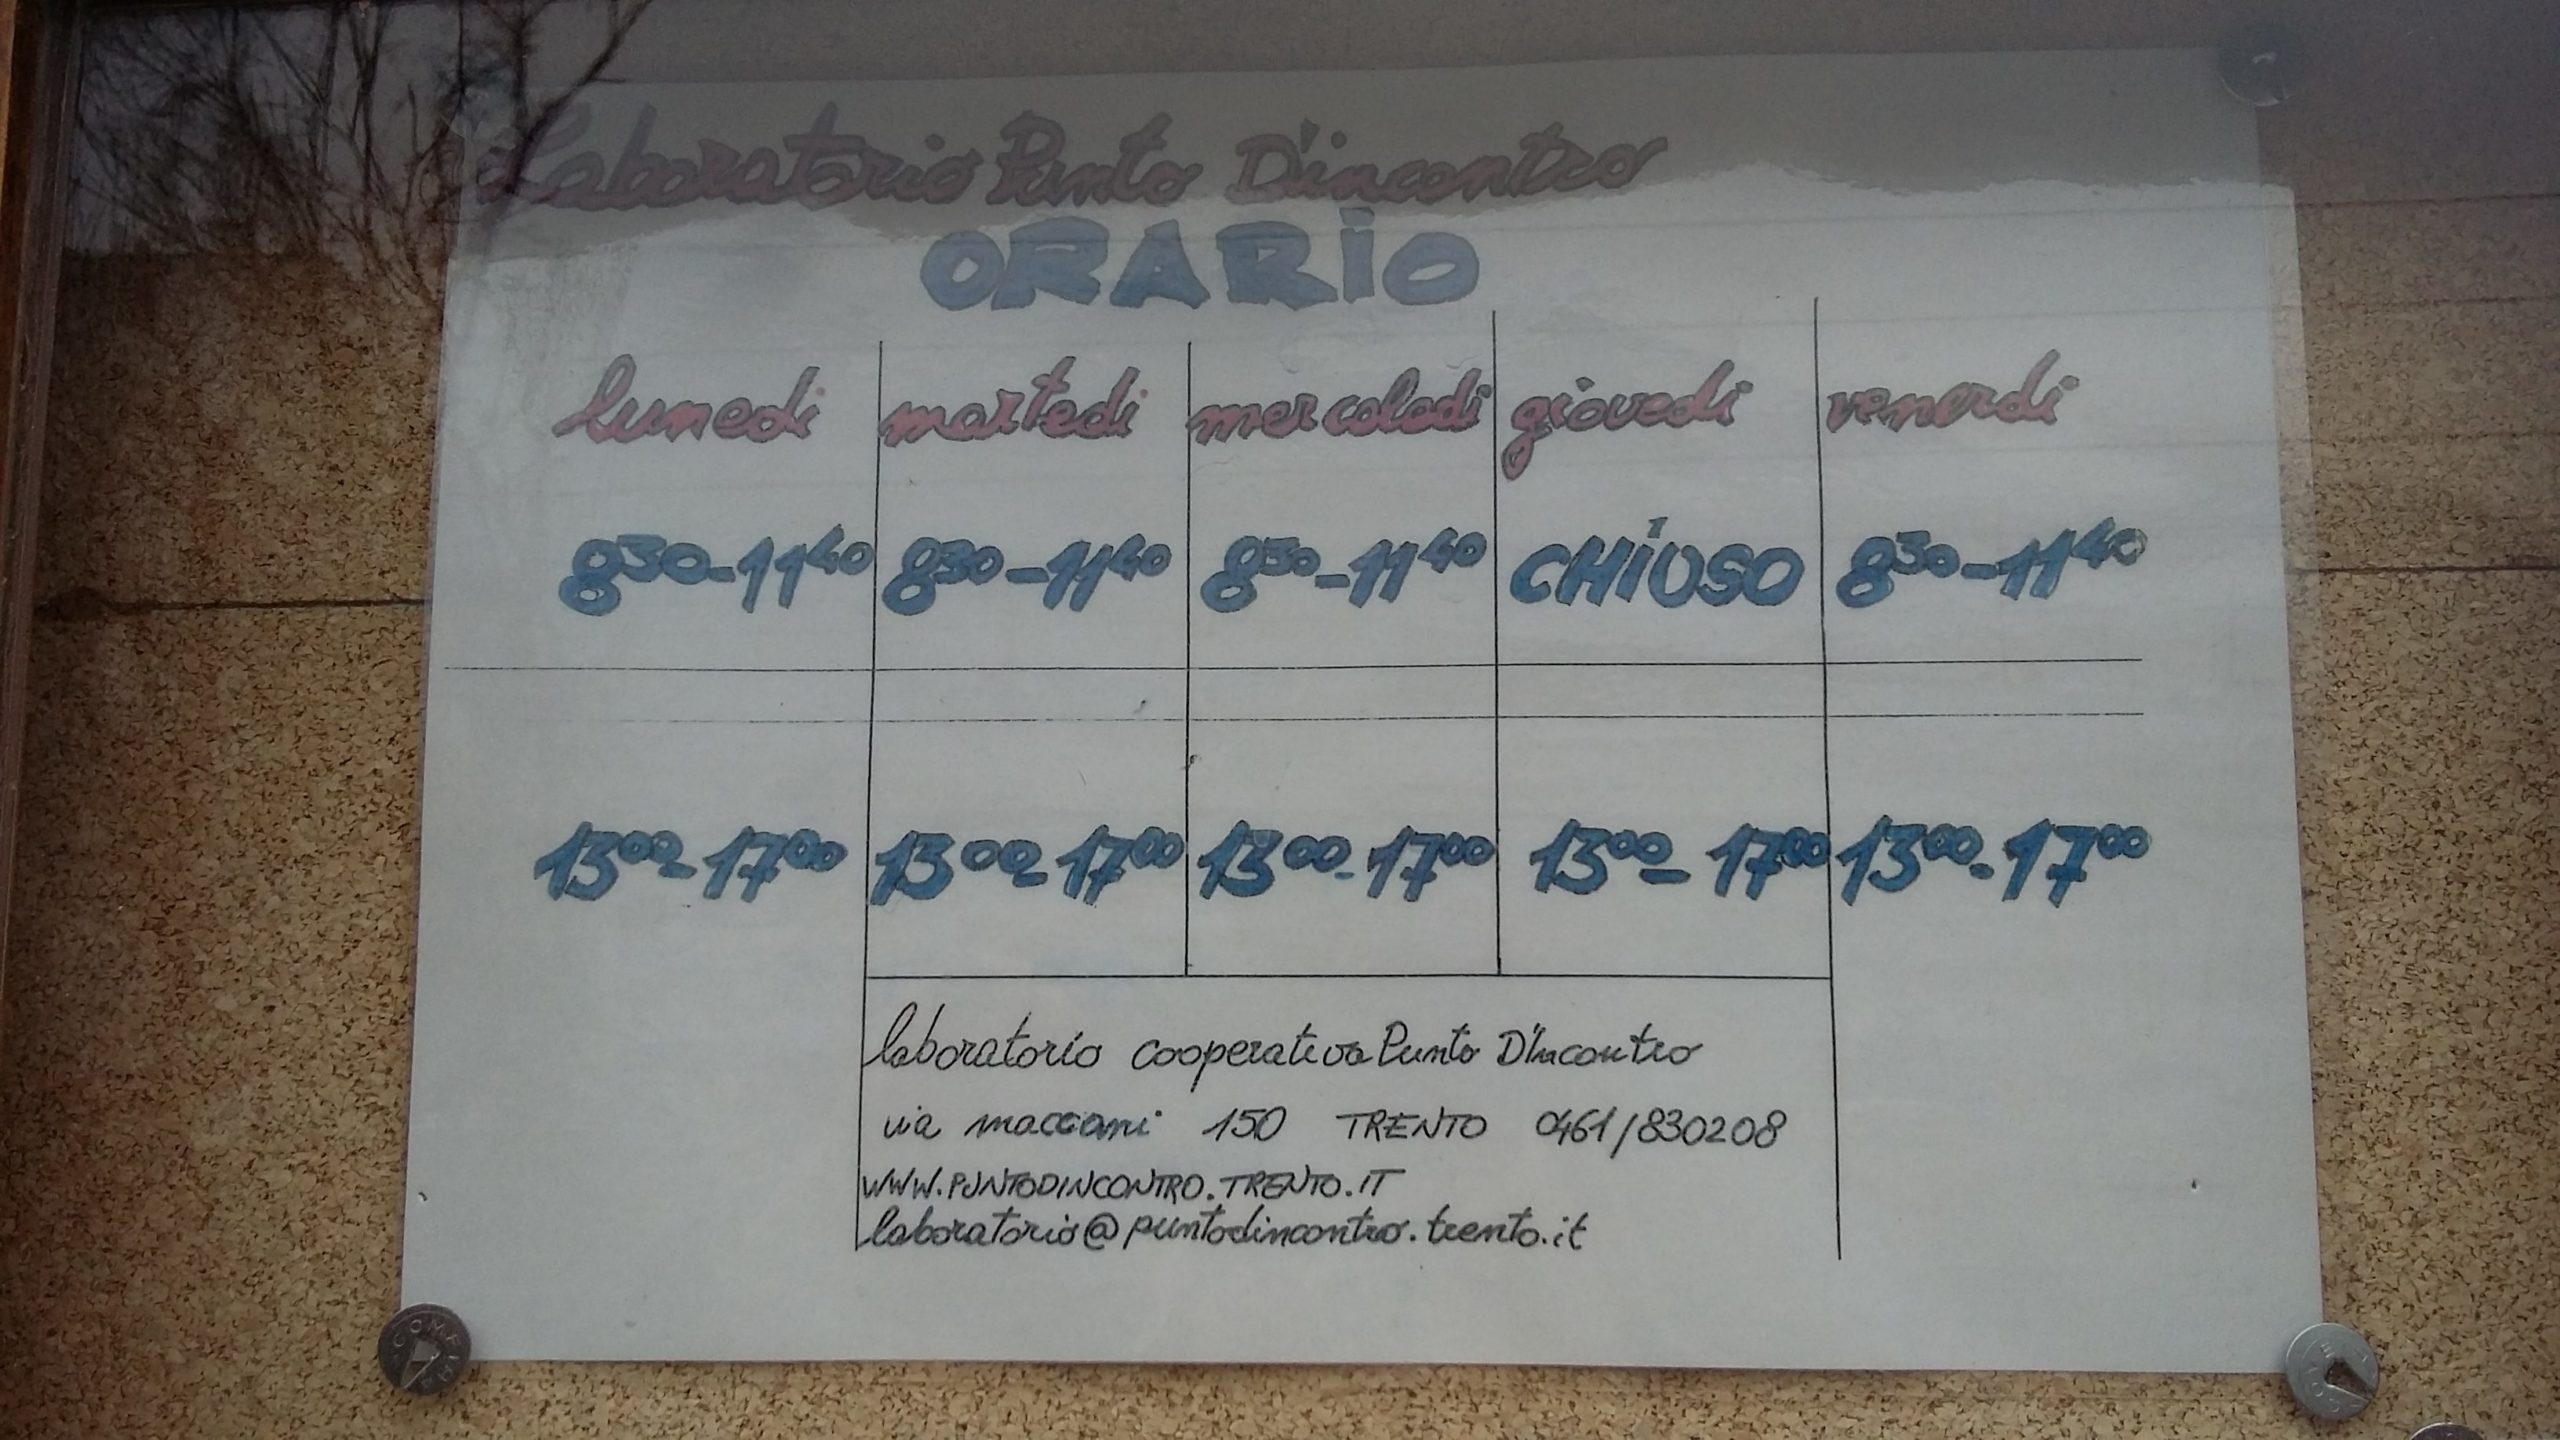 Laboratorio Punto D'incontro
ORARIO
lunedi martedi mercoledi giovedi venerdi
8³⁰-11⁴⁰ 8³⁰-11⁴⁰ 8³⁰-11⁴⁰ CHIUSO 8³⁰-11⁴⁰
13⁰⁰-17⁰⁰ 13⁰⁰-17⁰⁰ 13⁰⁰-17⁰⁰ 13⁰⁰-17⁰⁰ 13⁰⁰-17⁰⁰
laboratorio cooperativa Punto D'Incontro
via maccani 150 TRENTO 0461/830208
WWW.PUNTODINCONTRO.TRENTO.IT
laboratorio@puntodincontro.trento.it